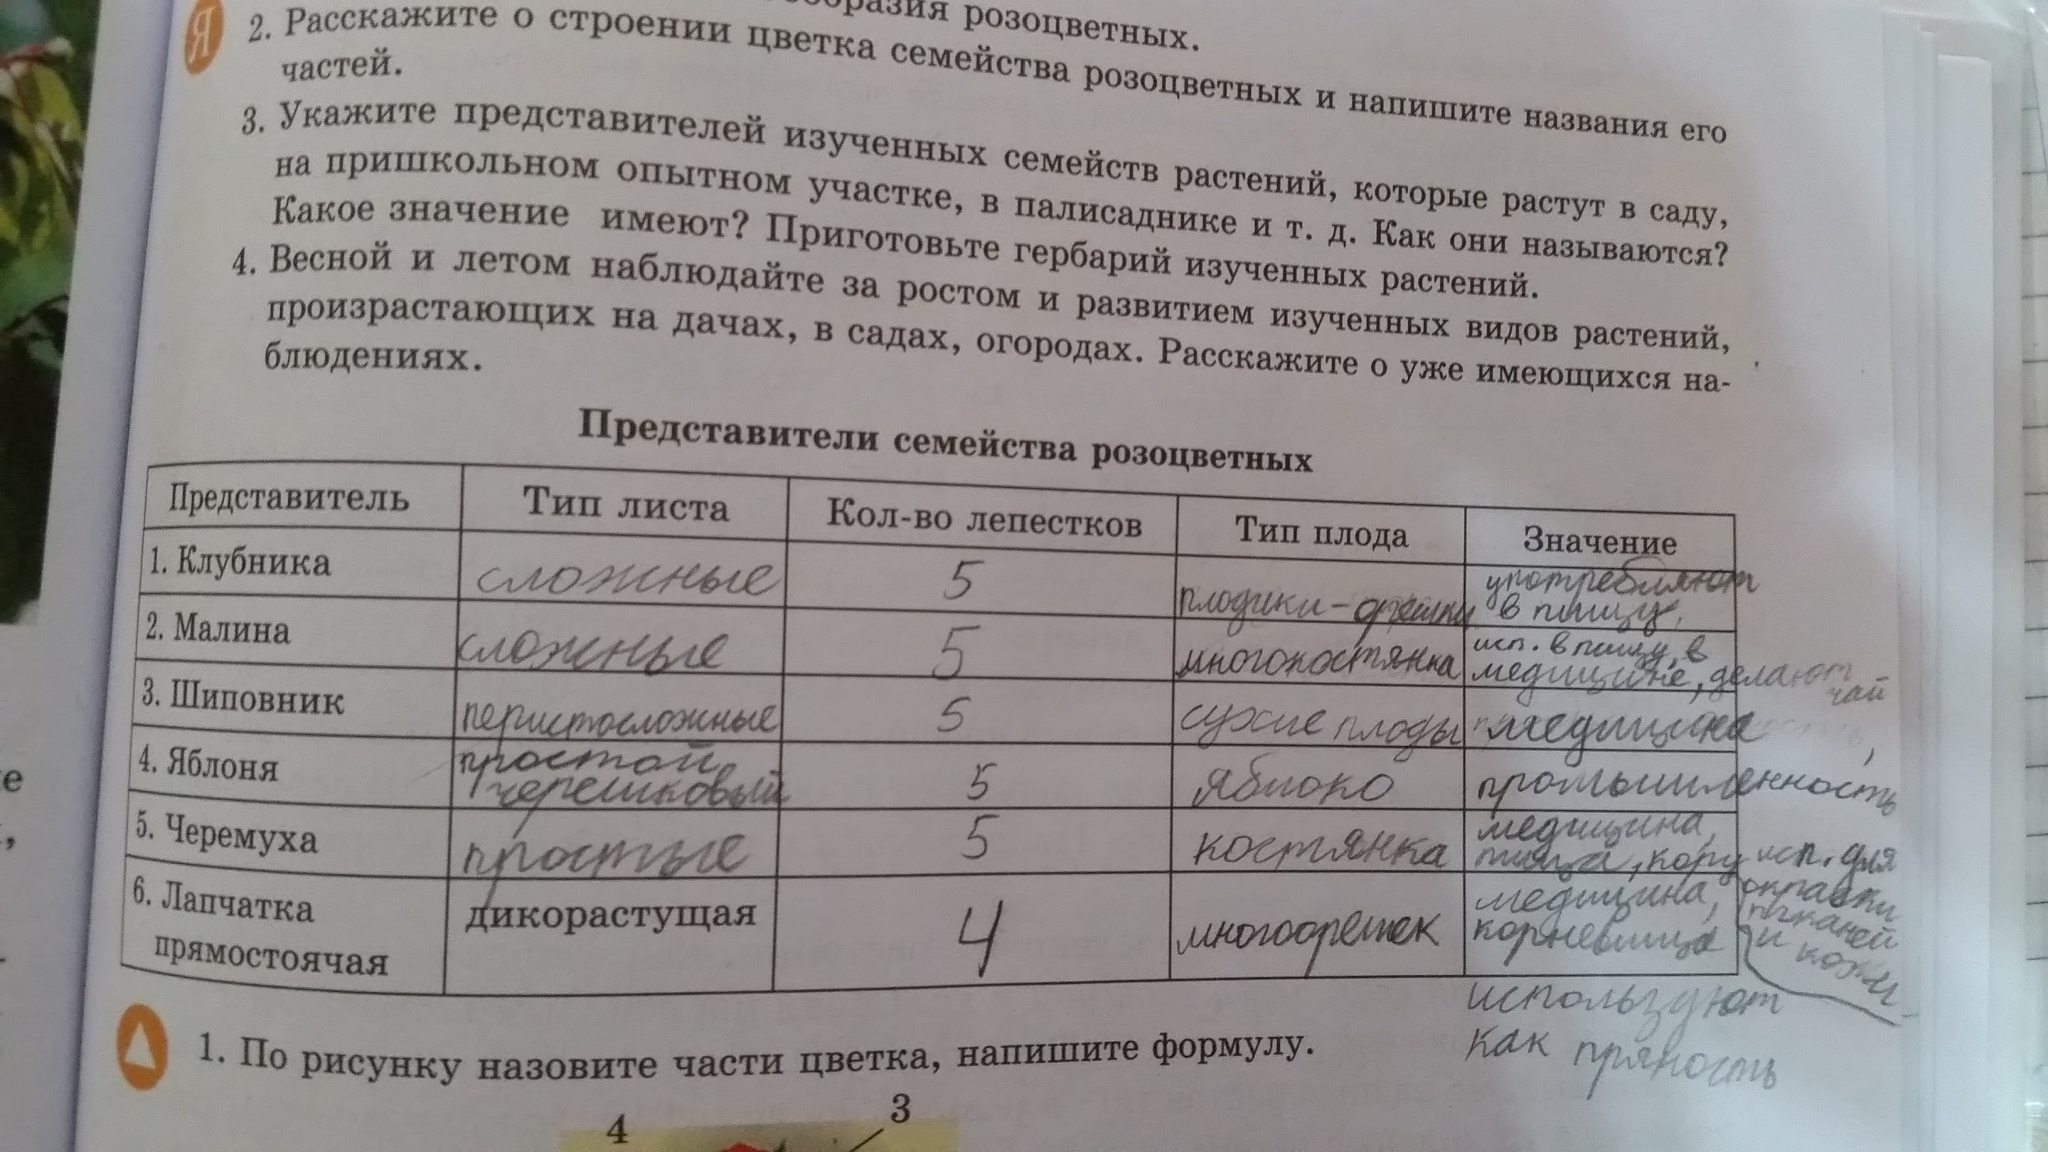 Я
розоцветных.
2. Расскажите о строении цветка семейства розоцветных и напишите названия его
частей.
3. Укажите представителей изученных семейств растений, которые растут в саду,
на пришкольном опытном участке, в палисаднике и т. д. Как они называются?
Какое значение имеют? Приготовьте гербарий изученных растений.
4. Весной и летом наблюдайте за ростом и развитием изученных видов растений,
произрастающих на дачах, в садах, огородах. Расскажите о уже имеющихся на-
блюдениях.
Представители семейства розоцветных
Представитель Тип листа Кол-во лепестков Тип плода Значение
1. Клубника сложные 5 плодики-орешки употребляют
в пищу,
2. Малина сложные 5 многокостянка исп. в пищу, в
медицине, делают
чай
3. Шиповник перистосложные 5 сухие плоды медицина
4. Яблоня простой
черешковый 5 яблоко промышленность
5. Черемуха простые 5 костянка медицина,
пища, кору исп. для
окраски
тканей
и кожи
6. Лапчатка
прямостоячая дикорастущая 4 многоорешек медицина,
корневища
используют
как пряность
1. По рисунку назовите части цветка, напишите формулу.
4 3